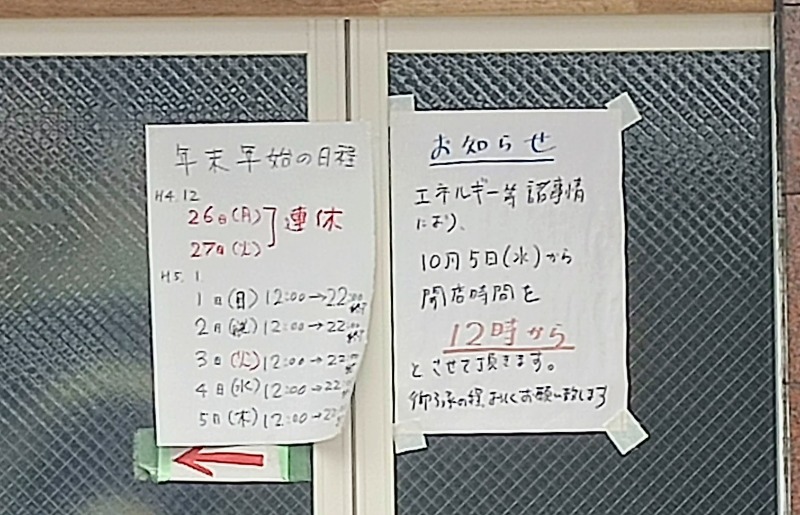 年末年始の日程
H4.12
26日(月)
27日(火)
連休
H5.1
1日(日)12:00→22:00
2日 12:00→22:00
3日(火)12:00→22:00
4日(水)12:00→22
5日(木)12:00→22
お知らせ
エネルギー等諸事情
により、
10月5日(水)から
開店時間を
12時から
とさせて頂きます。
御了承の程、よろしくお願い致します